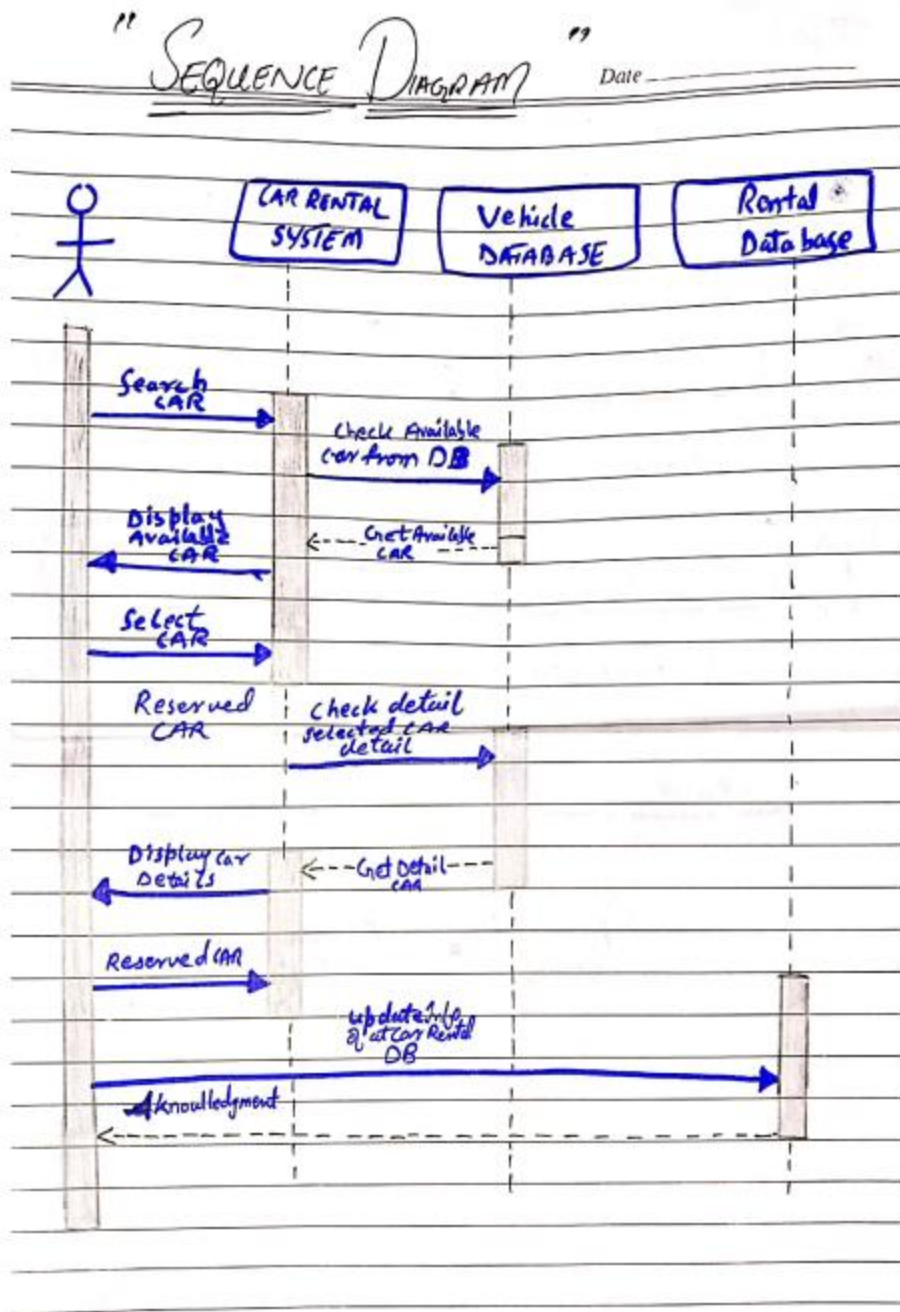 " SEQUENCE DIAGRAM "
Date
CAR RENTAL
SYSTEM
Vehicle
DATABASE
Rental
Database
Search
CAR
Check Available
car from DB
Get Available
CAR
Display
Available
CAR
Select
CAR
Reserved
CAR
Check detail
selected CAR
detail
Get Detail
CAR
Display car
Details
Reserved CAR
update Info
at Car Rental
DB
Aknowlledgment